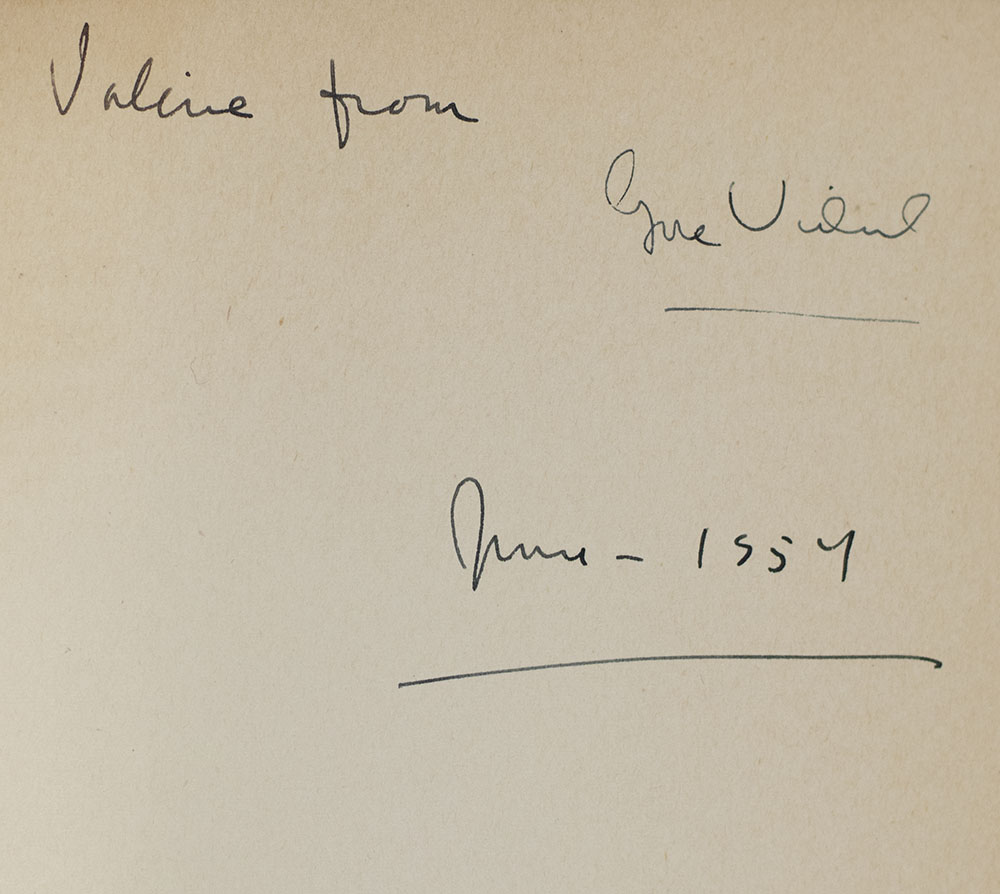 Valerie from
Gore Vidal
June - 1954